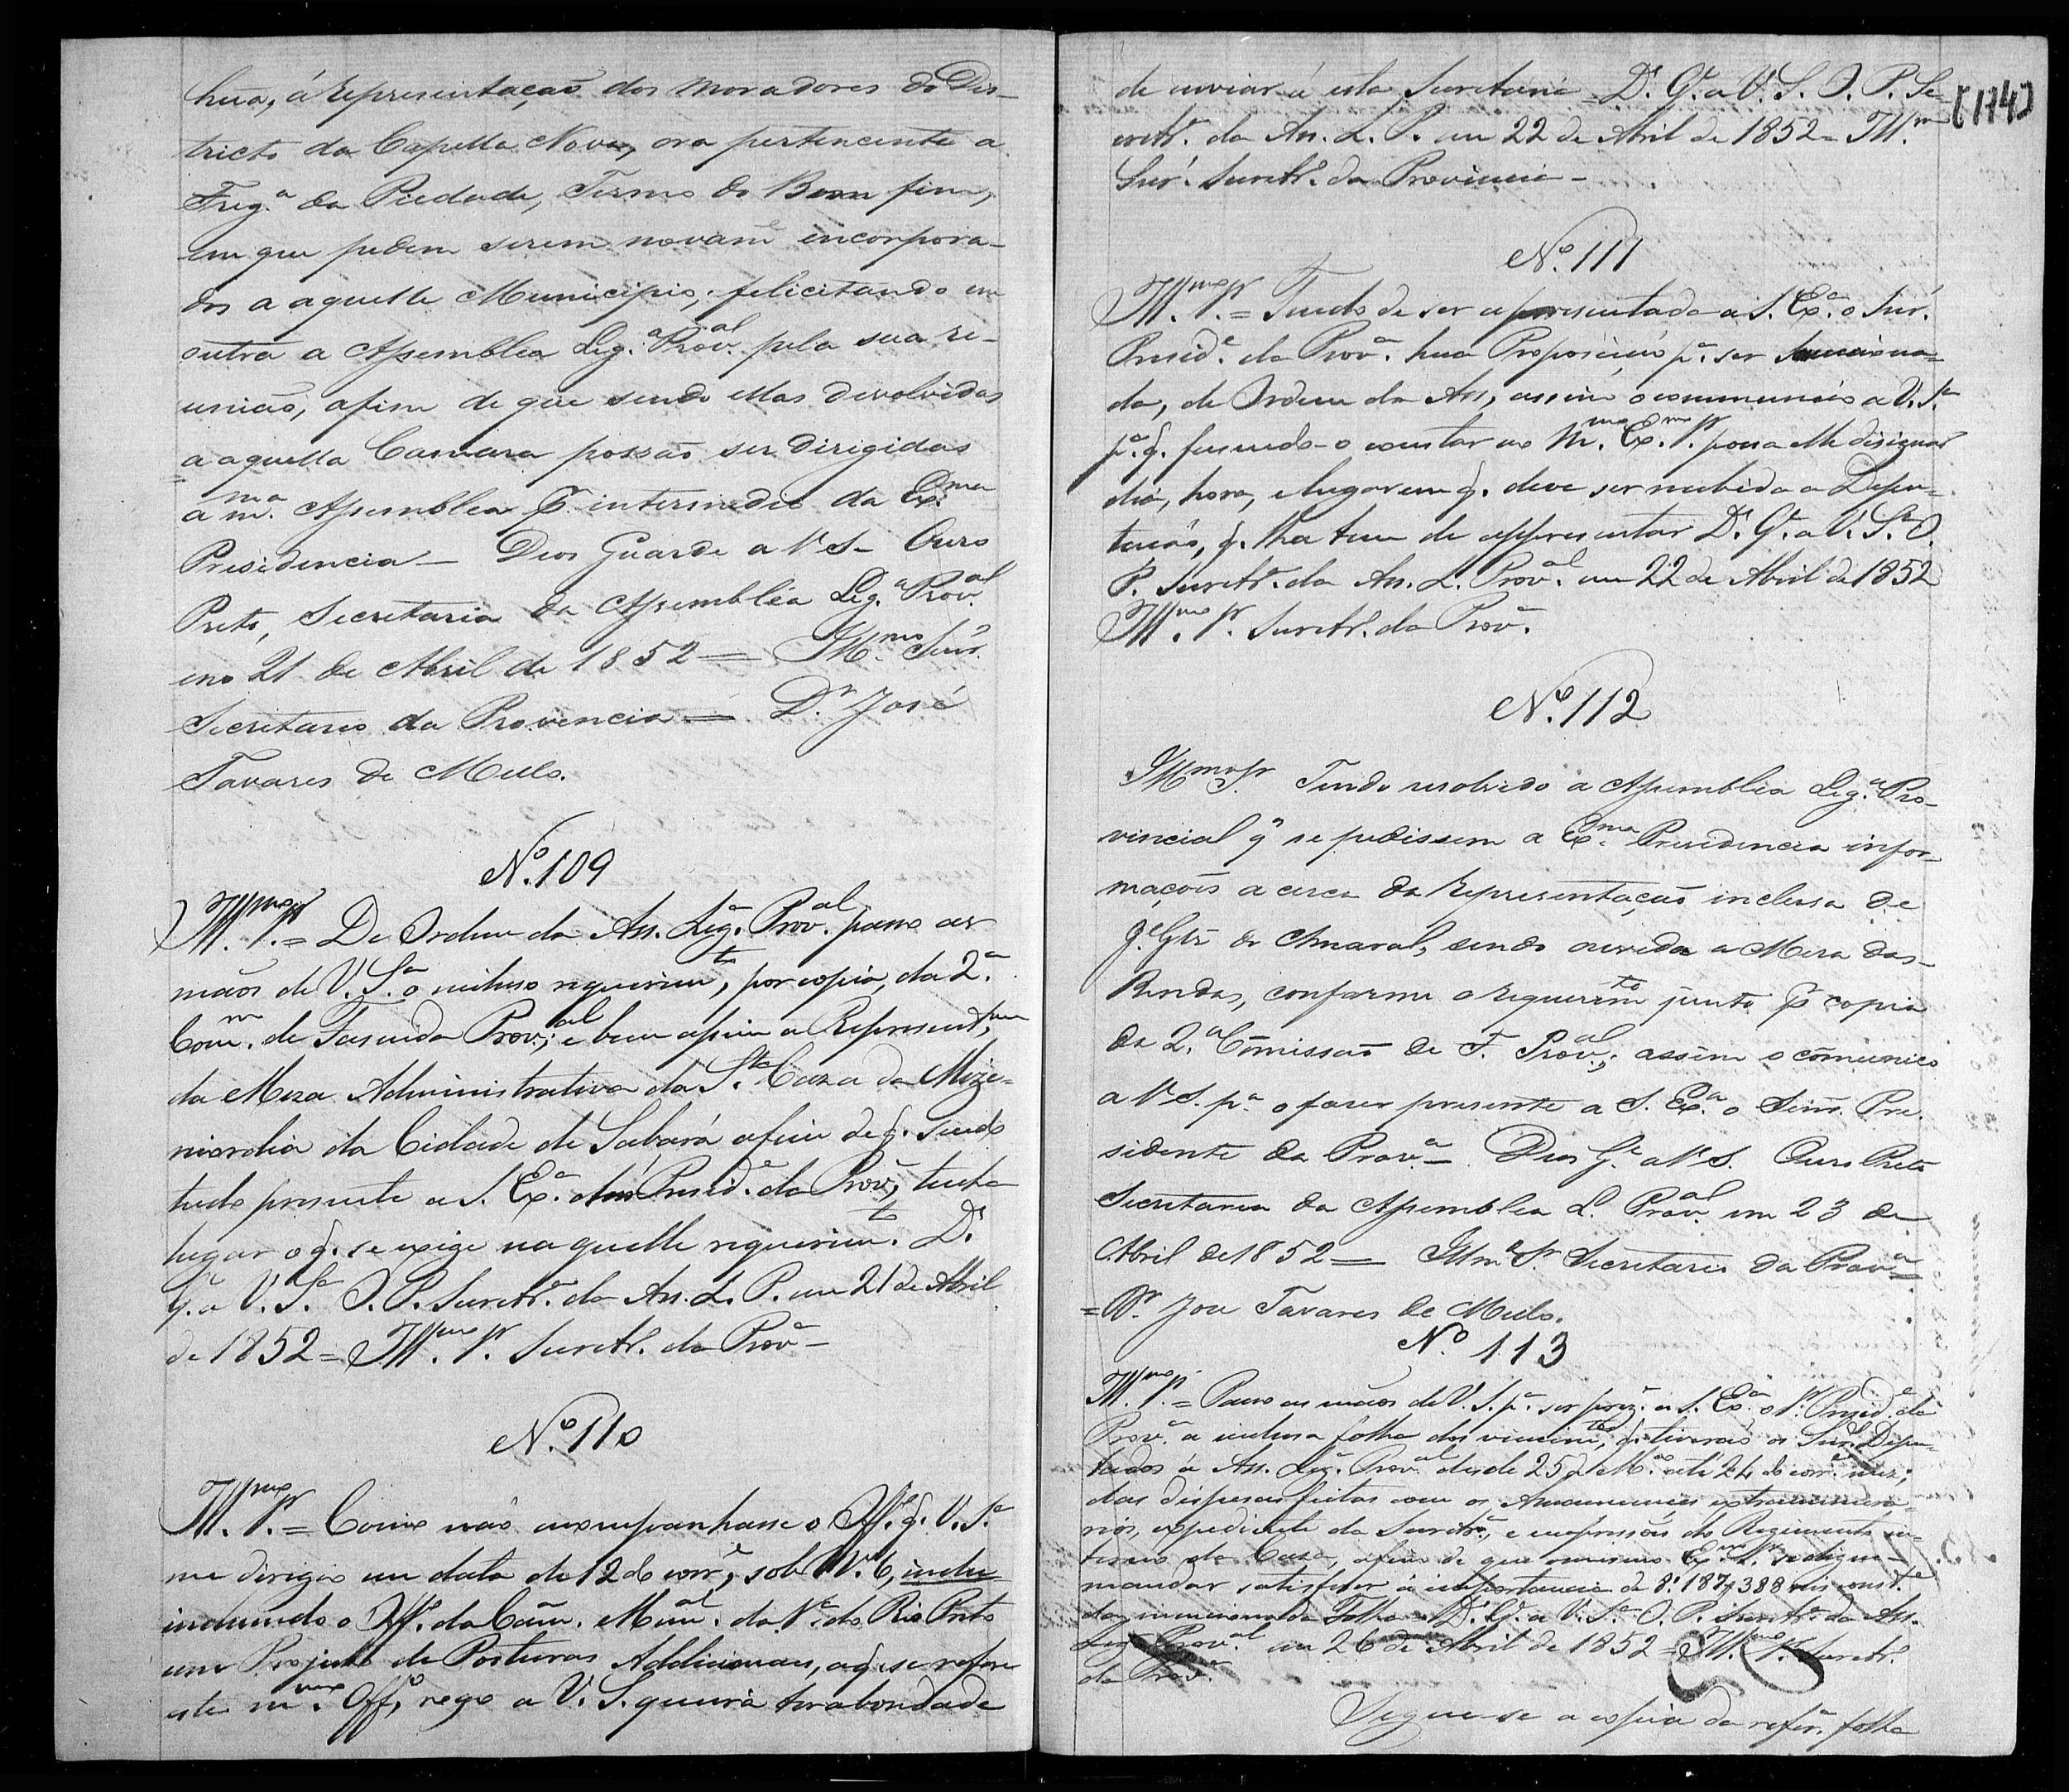 hua, á representação dos moradores do Des-
tricto da Capella Nova, ora pertencente a
Freg.ª da Piedade, Termo do Bom fim,
em que pedem serem novam.e incorpora-
dos a aquelle Municipio; felicitando em
outra a Assemblea Leg.ª Prov.al pela sua re-
união, afim de que sendo ellas devolvidas
a aquella Camara possão ser dirigidas
a m.ma Assemblea p. intermedio da Ex.ma
Presidencia — Deos Guarde a V S — Ouro
Preto, Secretaria da Assembléa Leg.ª Prov.al
em 21 de Abril de 1852 = Ill.mo Snr.
Secretario da Provencia = D.r José
Tavares de Mello.
Nº. 109
Ill.mo Sr. = De Ordem da Ass. Leg.ª Prov.al passo as
mãos de V. S.ª o incluso requerim.to, por copia, da 2.ª
Com.m de Fasenda Prov.al, e bem assim a Represent.am
da Meza Administrativa da S.ta Caza da Mize-
ricordia da Cidade de Sabará afim de q. sendo
tudo presente a S. Ex.ª o Snr. Presid.e da Prov.ª, tenha
lugar o q. se exige naquelle requerim.to D.s
G.e a V. S.ª O. P. Secretr.ª da Ass. L. P. em 21 de Abril
de 1852 = Ill.mo Sr. Secretr.º da Prov.ª —
Nº. 110
Ill.mo Sr. = Como não acompanhasse o Off.º q. V. S.ª
me dirigio em data de 12 do corr.e, sob Nº. 6, inclu
incluindo o Off.º da Cam. Mun.al da V.ª do Rio Preto
um Projecto de Posturas Addicionaes, a q. se refere
este m.mo Off.º, rogo a V. S. queira ter a bondade
[174]
de enviar á esta Secretaria = D.s G.e a V. S. O. P. Se-
cretr.ª da Ass. L. P. em 22 de Abril de 1852 = Ill.mo
Snr. Secretr.º da Provincia —
Nº. 111
Ill.mo Sr. = Tendo de ser apresentada a S. Ex.ª o Snr.
Presid.e da Prov.ª hua Proposição p.ª ser Sancciona-
da, de Ordem da Ass, assim o communico a V. S.ª
p.ª q. fasendo-o constar ao m.mo Ex.mo Sr. possa elle designar
dia, hora, e lugar em q. deve ser recebida a Depu-
tação, q. lha tem de appresentar D.s G.e a V. S.ª O.
P. Secretr.ª da Ass. L. Prov.al em 22 de Abril de 1852
Ill.mo Sr. Secretr.º da Prov.ª
Nº. 112
Ill.mo Sr. Tendo resolvido a Assemblea Leg.ª Pro-
vincial q' se pedissem a Ex.ma Presidencia infor-
mações acerca da representação inclusa de
J.e Glz do Amaral, sendo ouvida a Mesa das
Rendas, conforme o requerim.to junto p. copia
da 2.ª Comissão de F. Prov.al; assim o cõmunico
a V S. p.ª o faser presente a S. Ex.ª o Senr. Pre-
sidente da Prov.ª — Deos G.e a V S. Ouro Preto
Secretaria da Assemblea L. Prov.al em 23 de
Abril de 1852 = Illm.º Sr. Secretario da Prov.ª =
= Dr. Jose Tavares de Mello.
Nº 113
Ill.mo Sr. = Passo as mãos de V. S. p.ª ser prez.e a S. Ex.ª o Sr. Presid.e da
Prov.ª a inclusa folha dos vencim.tos, q. tiverão os Snr.es Depu-
tados á Ass. Leg.ª Prov.al desde 25 de M.ço até 24 do corr.e mez;
das despesas feitas com os Amanuenses extranumera-
rios, expediente da Secretr.ª, e impressão do Regimento in-
terno da Casa, afim de que o mesmo Ex.mo Sr. se digne
mandar satisfaser a importancia de 8:187$388 reis const.e
da mencionada Folha = D.s G.e a V. S.ª O. P. Secretr.ª da Ass.
Leg. Prov.al em 26 de Abril de 1852 = Ill.mo Sr. Secretr.º
da Prov.ª
Segue-se a copia da refer.ª folha